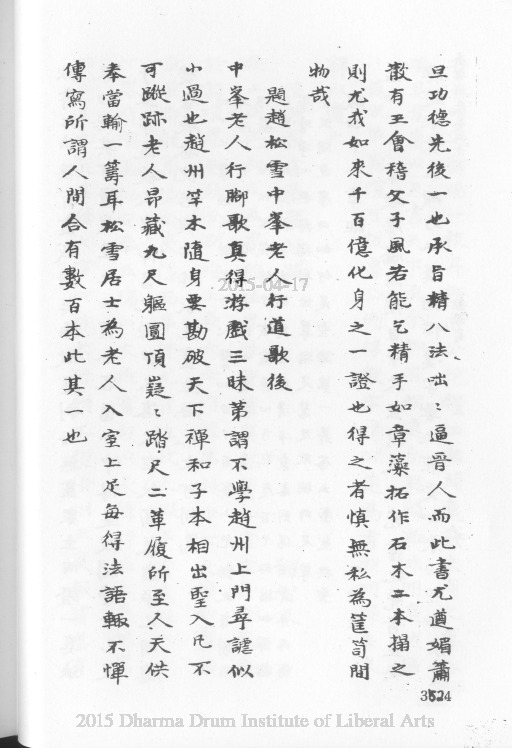 旦功德先後一也承旨精八法咄〻逼晉人而此書尤遒媚蕭
散有王會稽父子風若能乞精手如章藻拓作石木二本搨之
則尤我如來千百億化身之一證也得之者慎無私為筐笥間
物哉
題趙松雪中峯老人行道歌後
中峯老人行腳歌真得游戲三昧第謂不學趙州上門尋謔似
小過也趙州竿木隨身要勘破天下禪和子本相出聖入凡不
可蹤跡老人昂藏九尺軀圓頂嶷〻踏尺二革履所至人天供
奉當輸一籌耳松雪居士為老人入室上足每得法語輒不憚
傳寫所謂人間合有數百本此其一也
2015-04-17
2015 Dharma Drum Institute of Liberal Arts